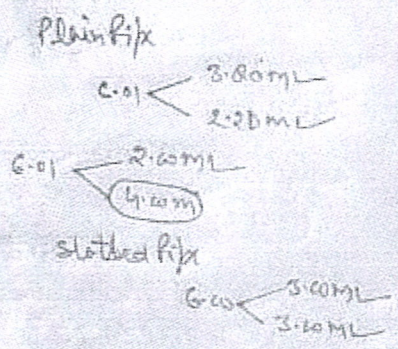 Plain Pipe
3.80 mL
6.01
2.20 mL
6.01
2.00 mL
4.00 m
Slotted Pipe
6.00
3.00 mL
3.00 mL